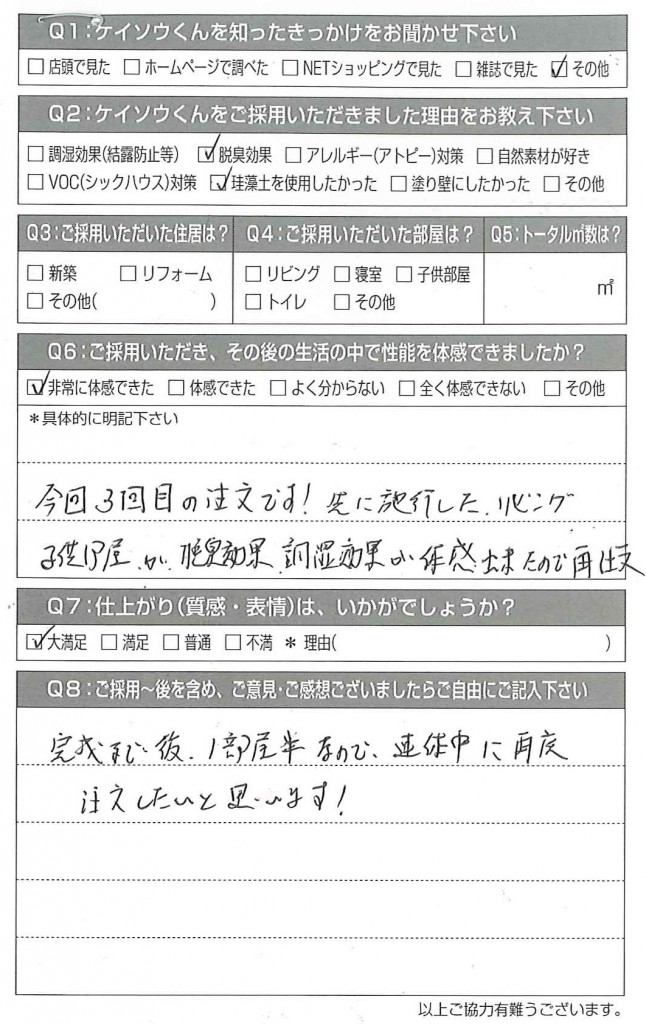 Q1:ケイソウくんを知ったきっかけをお聞かせ下さい
□店頭で見た □ホームページで調べた □NETショッピングで見た □雑誌で見た ☑その他
Q2:ケイソウくんをご採用いただきました理由をお教え下さい
□調湿効果(結露防止等) ☑脱臭効果 □アレルギー(アトピー)対策 □自然素材が好き
□VOC(シックハウス)対策 ☑珪藻土を使用したかった □塗り壁にしたかった □その他
Q3:ご採用いただいた住居は?
□新築 □リフォーム
□その他( )
Q4:ご採用いただいた部屋は?
□リビング □寝室 □子供部屋
□トイレ □その他
Q5:トータル㎡数は?
㎡
Q6:ご採用いただき、その後の生活の中で性能を体感できましたか?
☑非常に体感できた □体感できた □よく分からない □全く体感できない □その他
*具体的に明記下さい
今回3回目の注文です!先に施行した、リビング
子供部屋が、脱臭効果、調湿効果が体感出来たので再注文
Q7:仕上がり(質感・表情)は、いかがでしょうか?
☑大満足 □満足 □普通 □不満 *理由( )
Q8:ご採用~後を含め、ご意見・ご感想ございましたらご自由にご記入下さい
完成まで後、1部屋半なので、連休中に再度
注文したいと思います!
以上ご協力有難うございます。